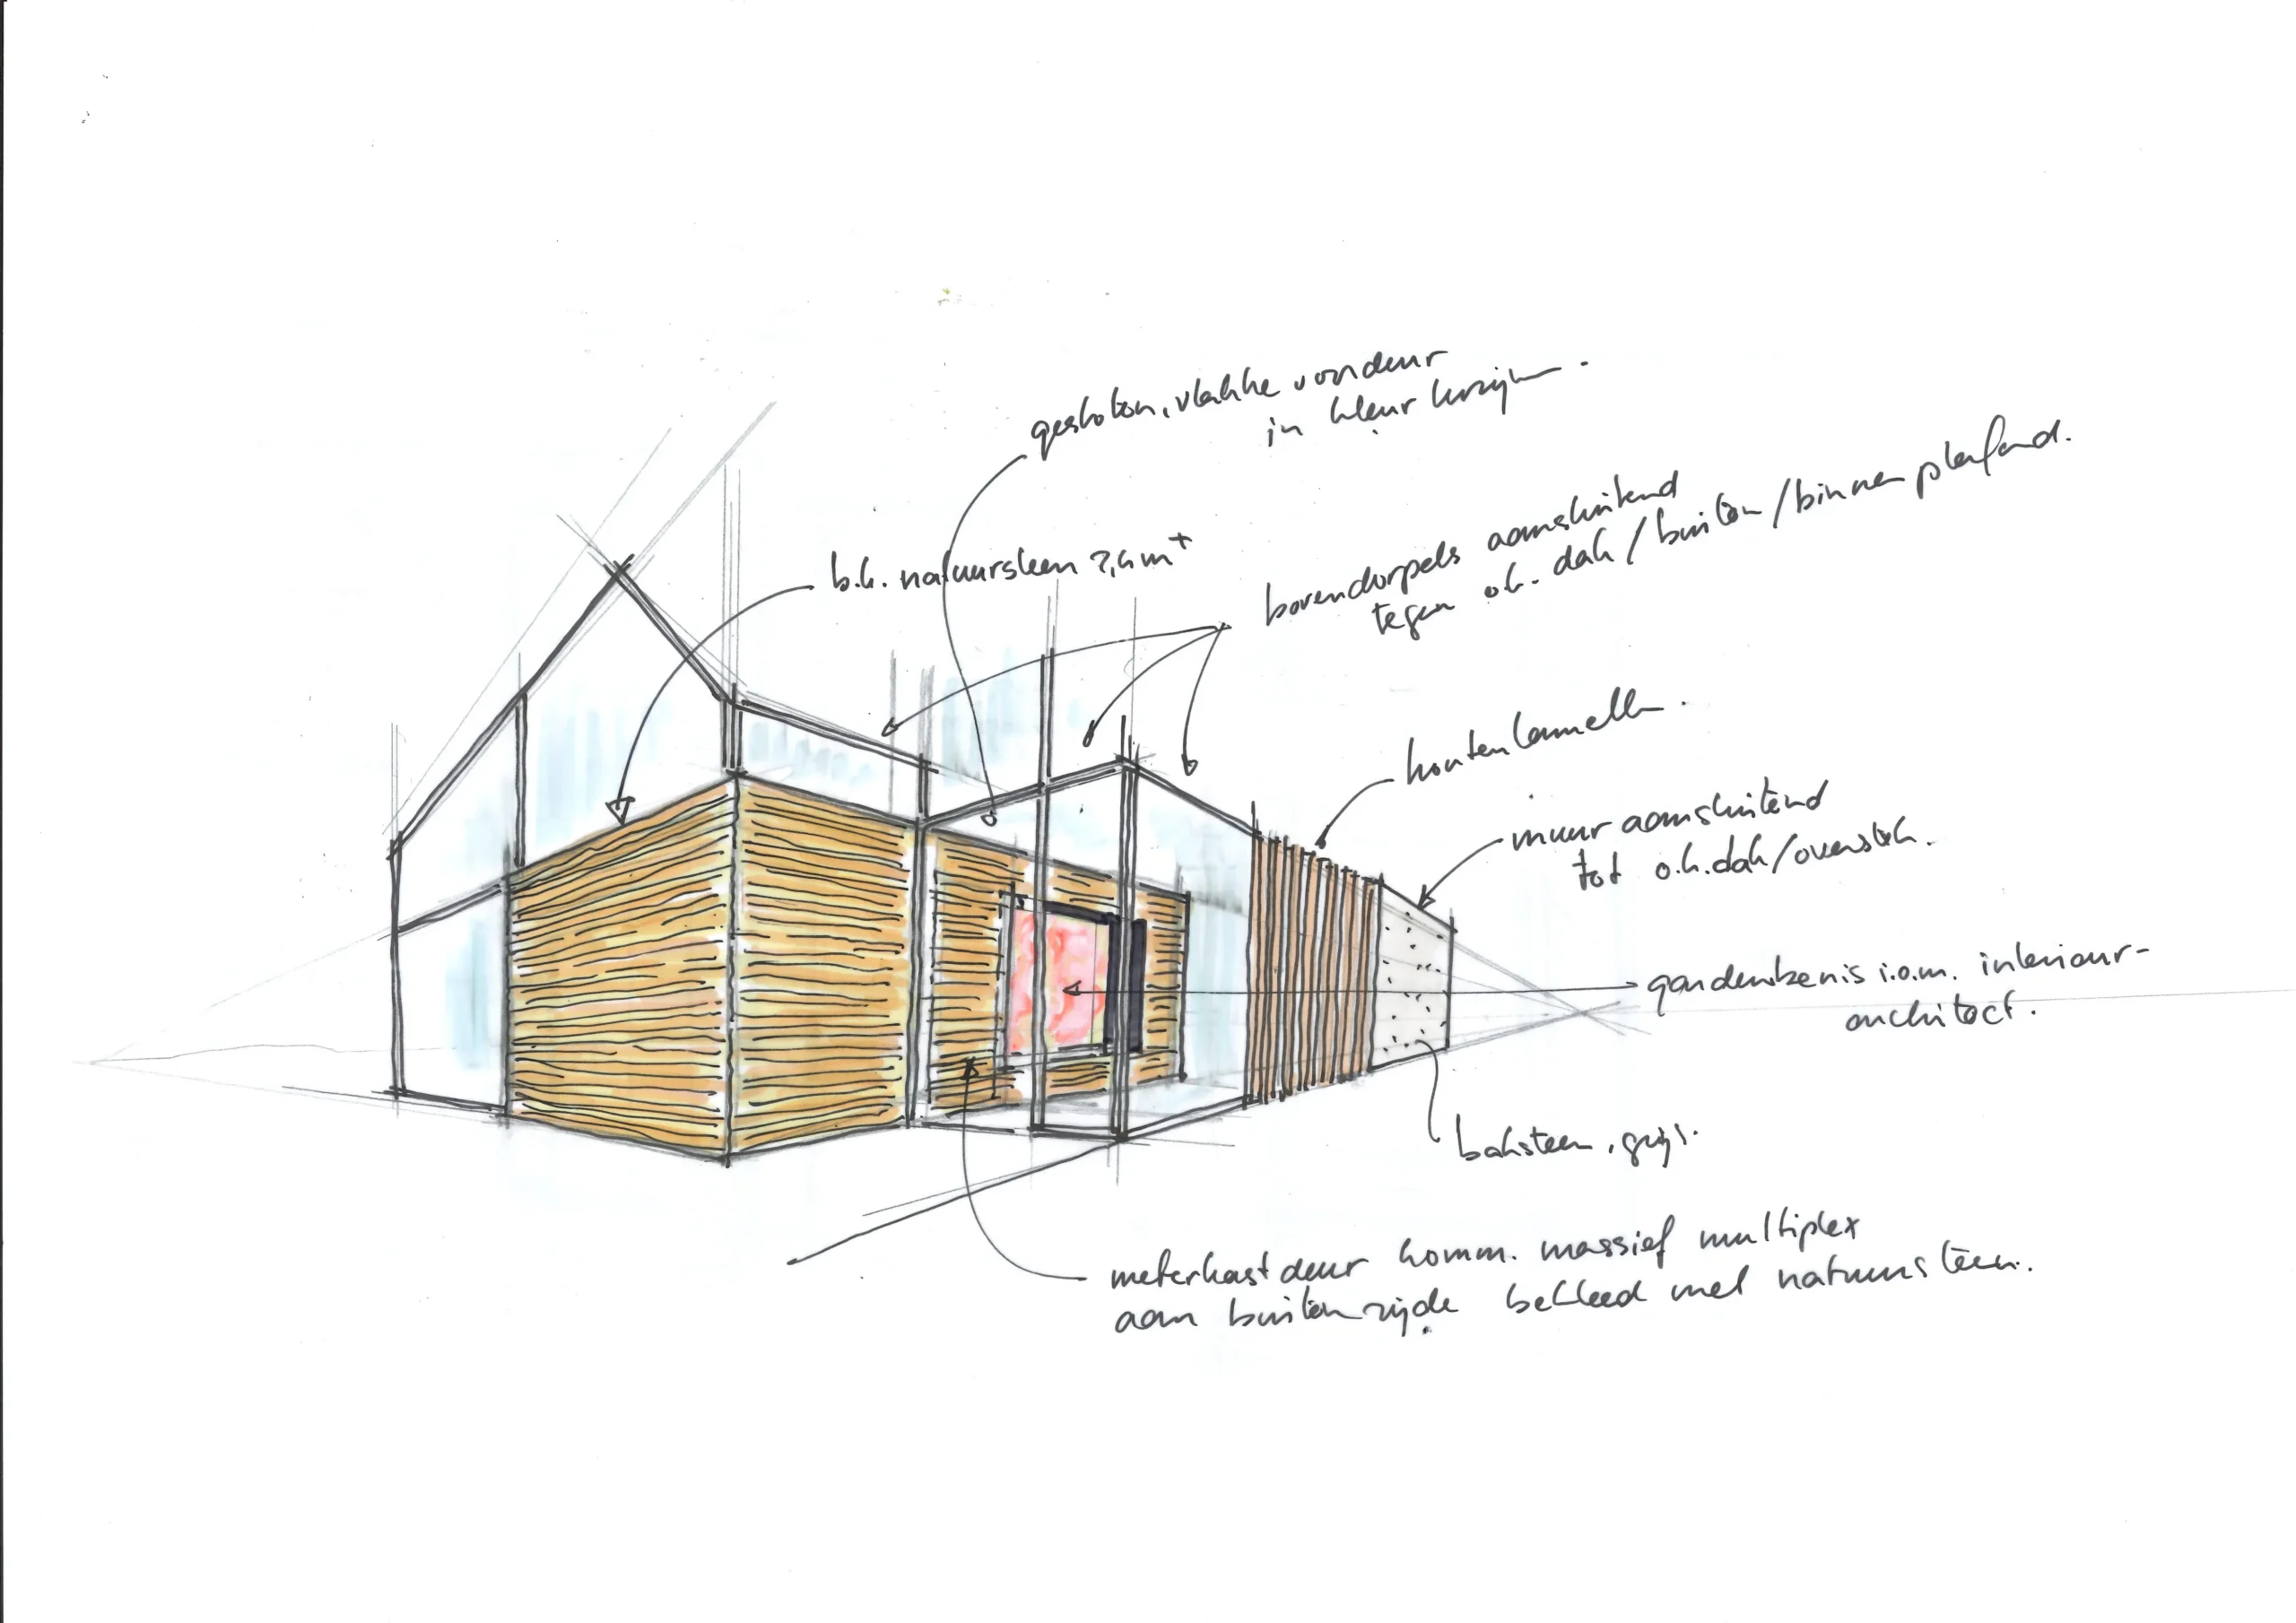 gesloten, vlakke voordeur
in kleur kozijn.
b.k. natuursteen 2,4 m+
bovendorpels aansluitend
tegen o.k. dak/buiten/binnen plafond.
houten lamellen.
muur aansluitend
tot o.k. dak/overstek.
garderobenis i.o.m. interieur-
architect.
baksteen, grijs.
meterkast deur komm. massief multiplex
aan buitenzijde bekleed met natuursteen.